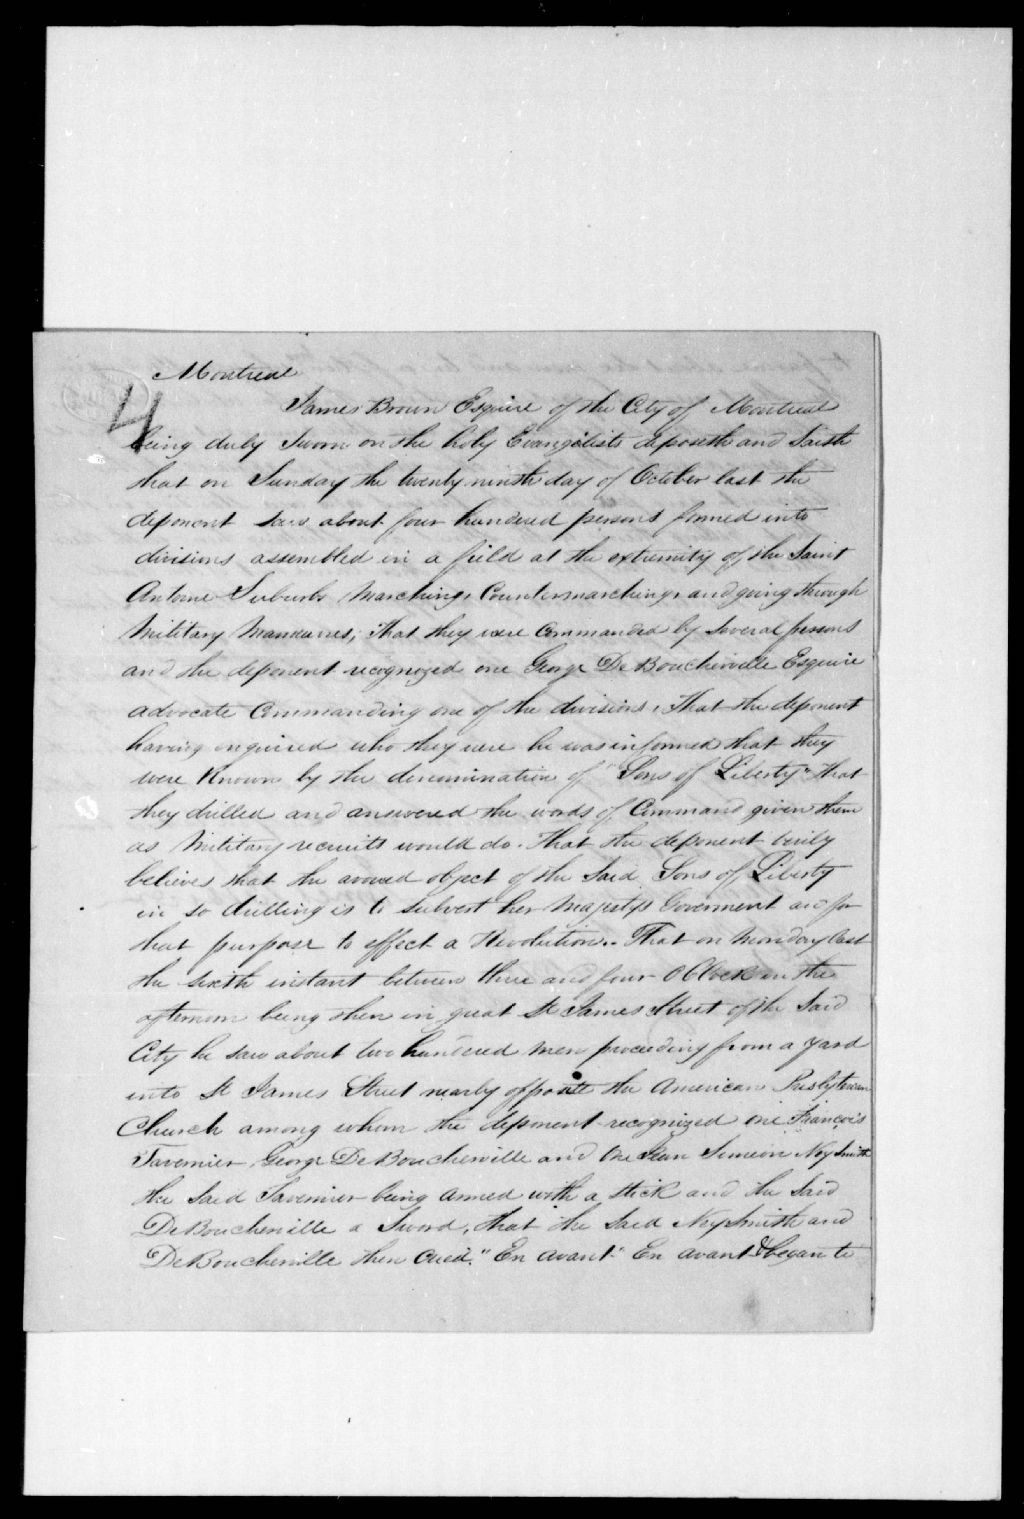 Montreal
4
James Brown Esquire of the City of Montreal
being duly Sworn on the holy Evangelists deposeth and Saith
that on Sunday the twenty ninth day of October last the
deponent saw about four hundred persons formed into
divisions assembled in a field at the extremity of the Saint
Antoine Suburbs Marching, Countermarching, and going through
Military Manœuvres; that they were Commanded by Several persons
and the deponent recognized one George De Boucherville Esquire
advocate Commanding one of the divisions, That the deponent
having enquired who they were he was informed that they
were Known by the denomination of "Sons of Liberty" that
they drilled and answered the words of Command given them
as Military recruits would do. That the deponent verily
believes that the avowed object of the Said Sons of Liberty
in so drilling is to Subvert her Majestys Goverment and for
that purpose to effect a Revolution. That on Monday last
the sixth instant between three and four O Clock in the
afternoon being then in great St James Street of the Said
City he saw about two hundered men proceeding from a yard
into St James Street nearly opposite the American Presbyterian
Church among whom the deponent recognized one François
Tavernier, George De Boucherville and One Jean Simeon Neysmith
the Said Tavernier being armed with a Stick and the Said
De Boucherville a Sword, that the Said Neysmith and
De Boucherville then cried, "En avant" En avant & began to